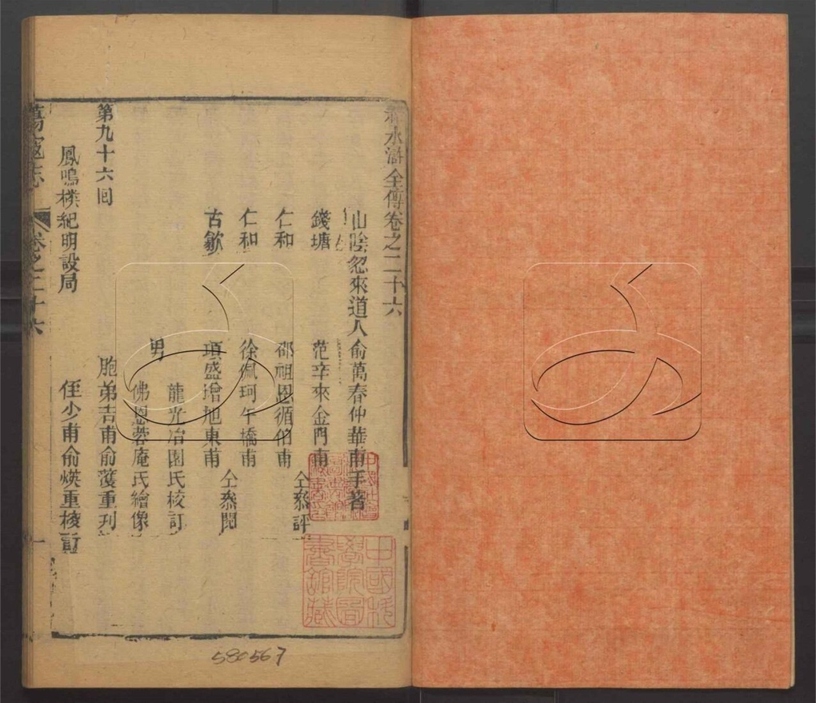 結水滸全傳卷之二十六
山陰忽來道人俞萬春仲華甫手著
錢塘 范辛來金門甫
仁和 邵祖恩循伯甫 仝叅評
仁和 徐佩珂午橋甫
古歙 項盛增旭東甫 仝叅閱
男 龍光冶園氏校訂
佛恩蓉庵氏繪像
胞弟吉甫俞灥重刋
侄少甫俞煐重校訂
第九十六回
鳳鳴樓紀明設局
蕩寇志 卷之二十六 一
中國科學院圖書館藏
580567